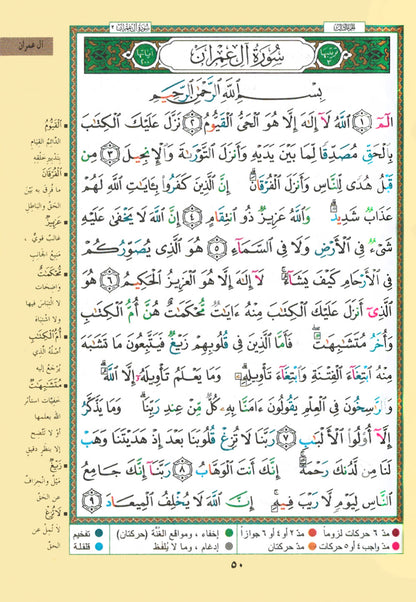 الجزء الثالث
سورة آل عمران ٣
آل عمران
ترتيبها ٣
سُورَةُ آلِ عِمْرَانَ
آياتها ٢٠٠
بِسْمِ اللَّهِ الرَّحْمَٰنِ الرَّحِيمِ
الٓمٓ ١ اللَّهُ لَآ إِلَٰهَ إِلَّا هُوَ الْحَيُّ الْقَيُّومُ ٢ نَزَّلَ عَلَيْكَ الْكِتَٰبَ
بِالْحَقِّ مُصَدِّقًا لِّمَا بَيْنَ يَدَيْهِ وَأَنزَلَ التَّوْرَىٰةَ وَالْإِنجِيلَ ٣ مِن
قَبْلُ هُدًى لِّلنَّاسِ وَأَنزَلَ الْفُرْقَانَ ۗ إِنَّ الَّذِينَ كَفَرُوا بِـَٔايَٰتِ اللَّهِ لَهُمْ
عَذَابٌ شَدِيدٌ ۗ وَاللَّهُ عَزِيزٌ ذُو انتِقَامٍ ٤ إِنَّ اللَّهَ لَا يَخْفَىٰ عَلَيْهِ
شَىْءٌ فِى الْأَرْضِ وَلَا فِى السَّمَآءِ ٥ هُوَ الَّذِى يُصَوِّرُكُمْ
فِى الْأَرْحَامِ كَيْفَ يَشَآءُ ۚ لَآ إِلَٰهَ إِلَّا هُوَ الْعَزِيزُ الْحَكِيمُ ٦ هُوَ
الَّذِىٓ أَنزَلَ عَلَيْكَ الْكِتَٰبَ مِنْهُ ءَايَٰتٌ مُّحْكَمَٰتٌ هُنَّ أُمُّ الْكِتَٰبِ
وَأُخَرُ مُتَشَٰبِهَٰتٌ ۖ فَأَمَّا الَّذِينَ فِى قُلُوبِهِمْ زَيْغٌ فَيَتَّبِعُونَ مَا تَشَٰبَهَ
مِنْهُ ابْتِغَآءَ الْفِتْنَةِ وَابْتِغَآءَ تَأْوِيلِهِۦ ۗ وَمَا يَعْلَمُ تَأْوِيلَهُۥٓ إِلَّا اللَّهُ ۗ
وَالرَّٰسِخُونَ فِى الْعِلْمِ يَقُولُونَ ءَامَنَّا بِهِۦ كُلٌّ مِّنْ عِندِ رَبِّنَا ۗ وَمَا يَذَّكَّرُ
إِلَّآ أُو۟لُوا الْأَلْبَٰبِ ٧ رَبَّنَا لَا تُزِغْ قُلُوبَنَا بَعْدَ إِذْ هَدَيْتَنَا وَهَبْ
لَنَا مِن لَّدُنكَ رَحْمَةً ۚ إِنَّكَ أَنتَ الْوَهَّابُ ٨ رَبَّنَآ إِنَّكَ جَامِعُ
النَّاسِ لِيَوْمٍ لَّا رَيْبَ فِيهِ ۚ إِنَّ اللَّهَ لَا يُخْلِفُ الْمِيعَادَ ٩
■ القَيُّومُ
الدَّائِمُ القِيَامِ
بِتَدْبِيرِ خَلْقِهِ
■ الْفُرْقَانَ
مَا فُرِقَ بِهِ بَيْنَ
الحَقِّ وَالبَاطِلِ
■ عَزِيزٌ
غَالِبٌ قَوِيٌّ،
مَنِيعُ الجَانِبِ
■ مُحْكَمَٰتٌ
وَاضِحَاتٌ
لَا الْتِبَاسَ فِيهَا
وَلَا اشْتِبَاهَ
■ أُمُّ الْكِتَٰبِ
أَصْلُهُ الَّذِي
يُرْجَعُ إِلَيْهِ
■ مُتَشَٰبِهَٰتٌ
خَفِيَّاتٌ اسْتَأْثَرَ
اللهُ بِعِلْمِهَا
أَوْ لَا تَتَّضِحُ
إِلَّا بِنَظَرٍ دَقِيقٍ
■ زَيْغٌ
مَيْلٌ وَانْحِرَافٌ
عَنِ الحَقِّ
■ لَا تُزِغْ
لَا تُمِلْ عَنِ
الحَقِّ
مدّ ٦ حركات لزوماً مدّ ٢ أو ٤ أو ٦ جوازاً إخفاء ، ومواقع الغُنَّة (حركتان) تفخيم
مدّ واجب ٤ أو ٥ حركات مدّ حركتان إدغام ، وما لا يُلفَظ قلقلة
٥٠